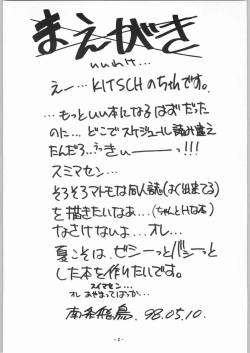 まえがき
いいわけ…
えー…KITSCHのちゃです。
…もっといい本になるはずだった
のに…どこでスケジュール読み違え
たんだろ…うっきぃーーっ!!!
スミマセン…
そろそろマトモな同人誌(はく出来てる)
を描きたいなぁ…(ちゃんとHな本)
なさけないよ…オレ…
夏こそは、ビシーっとバシーっと
した本を作りたいです。
スイマセン…
オレあやまってばっか…
98.05.10.
-2-